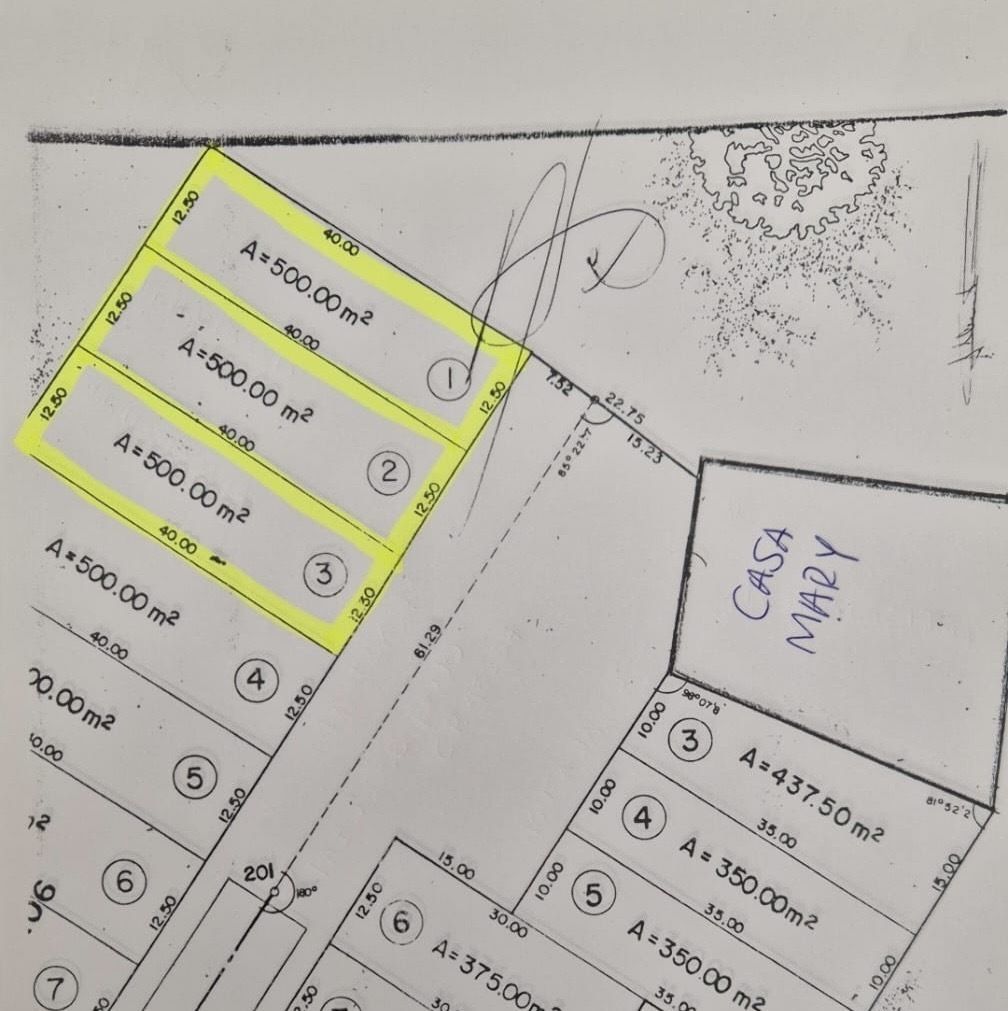 12.50
40.00
A=500.00m²
1
12.50
12.50
40.00
A=500.00 m²
2
12.50
12.50
40.00
A=500.00m²
3
12.50
40.00
A=500.00m²
4
12.50
40.00
00.00m²
5
12.50
6
12.50
7
7.52
22.75
15.23
85°22'47
61.29
201
180°
CASA
MARY
98°07'8
81°52'2
10.00
3
A=437.50m²
15.00
35.00
10.00
4
A=350.00m²
35.00
10.00
10.00
5
A=350.00 m²
35.00
15.00
12.50
30.00
6
A=375.00m²